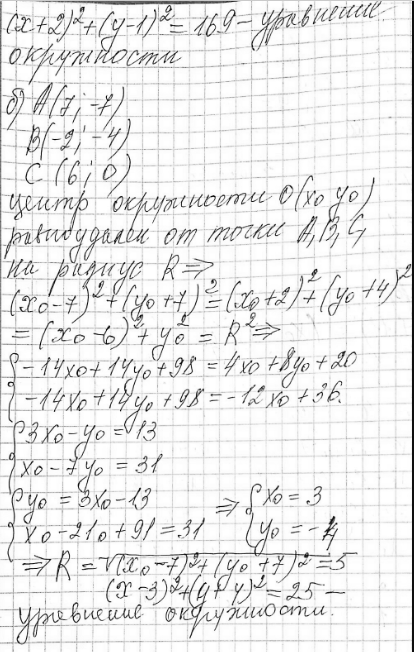 (x+2)²+(y-1)²=169 - уравнение
окружности
б) A(7; -7)
B(-2; -4)
C (6; 0)
центр окружности O(x₀ y₀)
равноудален от точки A, B, C,
на радиус R ⇒
(x₀-7)²+(y₀+7)²=(x₀+2)²+(y₀+4)²
=(x₀-6)²+y₀²=R² ⇒
{-14x₀+14y₀+98=4x₀+8y₀+20
{-14x₀+14y₀+98=-12x₀+36.
{3x₀-y₀=13
{x₀-7y₀=31
{y₀=3x₀-13 ⇒ {x₀=3
{x₀-21₀+91=31 {y₀=-4
⇒ R=√(x₀-7)²+(y₀+7)²=5
(x-3)²+(y+4)²=25 -
уравнение окружности.